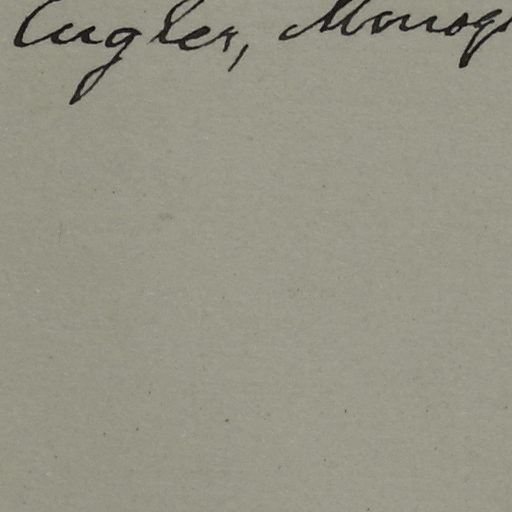 Engler, Monog